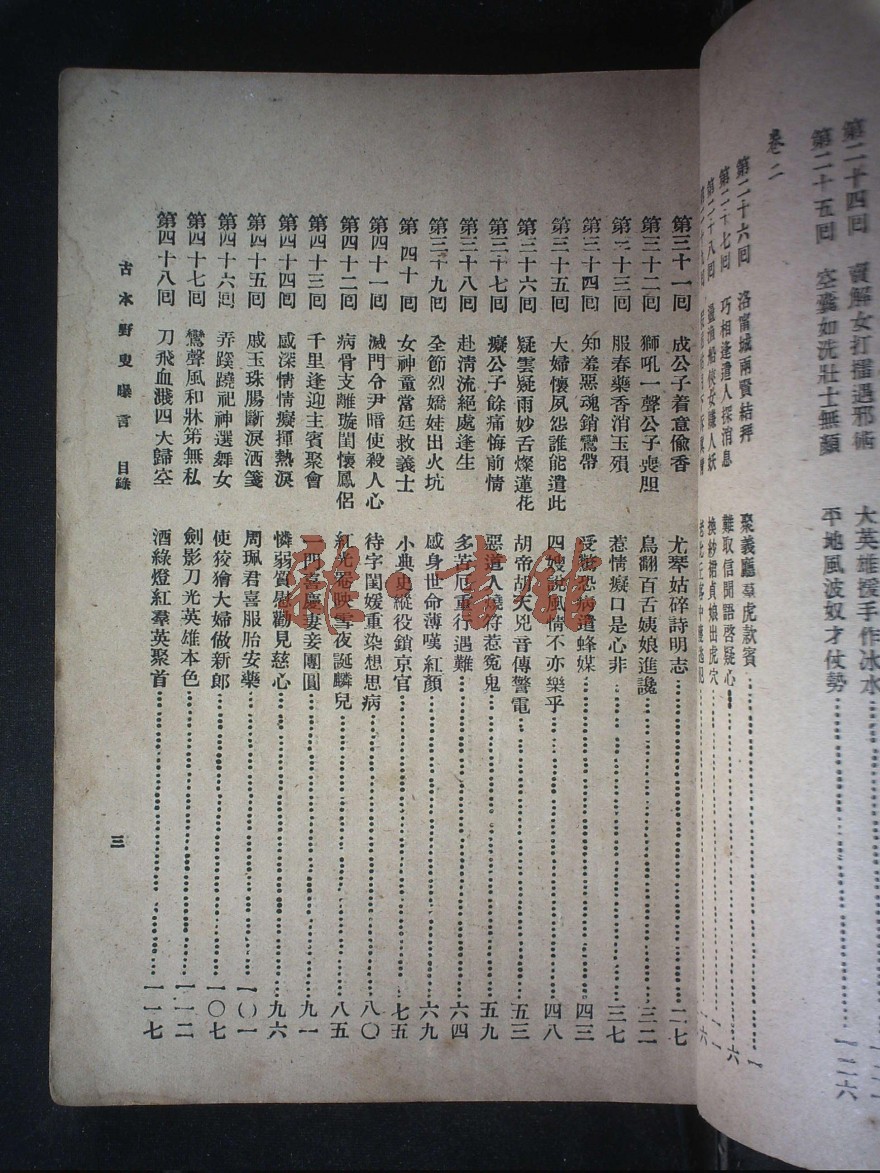 第二十四回　賣解女打擂遇邪術　大英雄援手作冰水
第二十五回　空囊如洗壯士無顏　平地風波奴才仗勢……一二六
卷二
第二十六回　洛富城兩賢結拜　聚義廳羣虎款賓……一
第二十七回　巧相逢遣人探消息　難取信聞語啓疑心……六
第二十八回　換紗裙貞娘出虎穴
第三十一回　成公子着意偸香　尤琴姑碎詩明志……二七
第三十二回　獅吼一聲公子喪胆　鳥翻百舌姨娘進讒……三二
第三十三回　服春藥香消玉殞　惹情癡口是心非……三七
第三十四回　知羞惡魂銷鸞帶　受懲恐病遣蜂媒……四三
第三十五回　大婦懷夙怨誰能遣此　四嫂說風情不亦樂乎……四八
第三十六回　疑雲疑雨妙舌燦蓮花　胡帝胡天兇音傳警電……五三
第三十七回　癡公子餘痛悔前情　惡道人燒符惹冤鬼……五九
第三十八回　赴淸流絕處逢生　多苦厄重行遇難……六四
第三十九回　全節烈嬌娃出火坑　感身世命薄嘆紅顏……六九
第四十回　女神童當廷救義士　小典史縱役鎖京官……七五
第四十一回　滅門令尹暗使殺人心　待字閨媛重染想思病……八〇
第四十二回　病骨支離璇閨懷鳳侶　紅光罨映雪夜誕麟兒……八五
第四十三回　千里逢迎主賓聚會　一門喜慶妻妾團圓……九一
第四十四回　感深情情癡揮熱淚　憐弱質慰勸見慈心……九六
第四十五回　戚玉珠腸斷淚洒箋　周珮君喜服胎安藥……一〇一
第四十六回　弄蹊蹺祀神選舞女　使狡獪大婦做新郎……一〇七
第四十七回　鸞聲風和牀第無私　劍影刀光英雄本色……一一二
第四十八回　刀飛血濺四大歸空　酒綠燈紅羣英聚首……一一七
古本野叟曝言　目錄
三
龍小書館